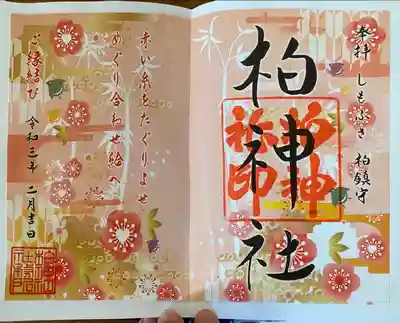 奉拝 しもふさ 柏鎮守
柏神社
赤い糸をたぐりよせ
めぐり合わせ給へ
ご縁結び 令和三年 二月吉日